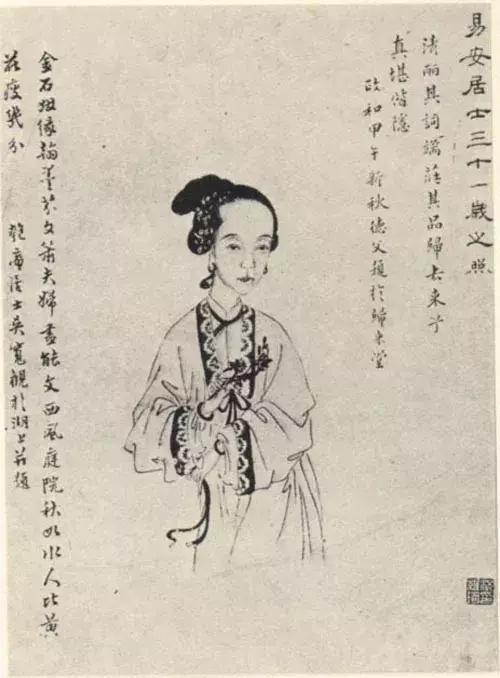 易安居士三十一歲之照
清麗其詞端莊其品歸去來兮
真堪偕隱
政和甲午新秋德父題於歸來堂
金石姻緣翰墨芬文簫夫婦盡能文西風庭院秋如水人比黃
花瘦幾分
匏庵居士吳寬觀於湖上題